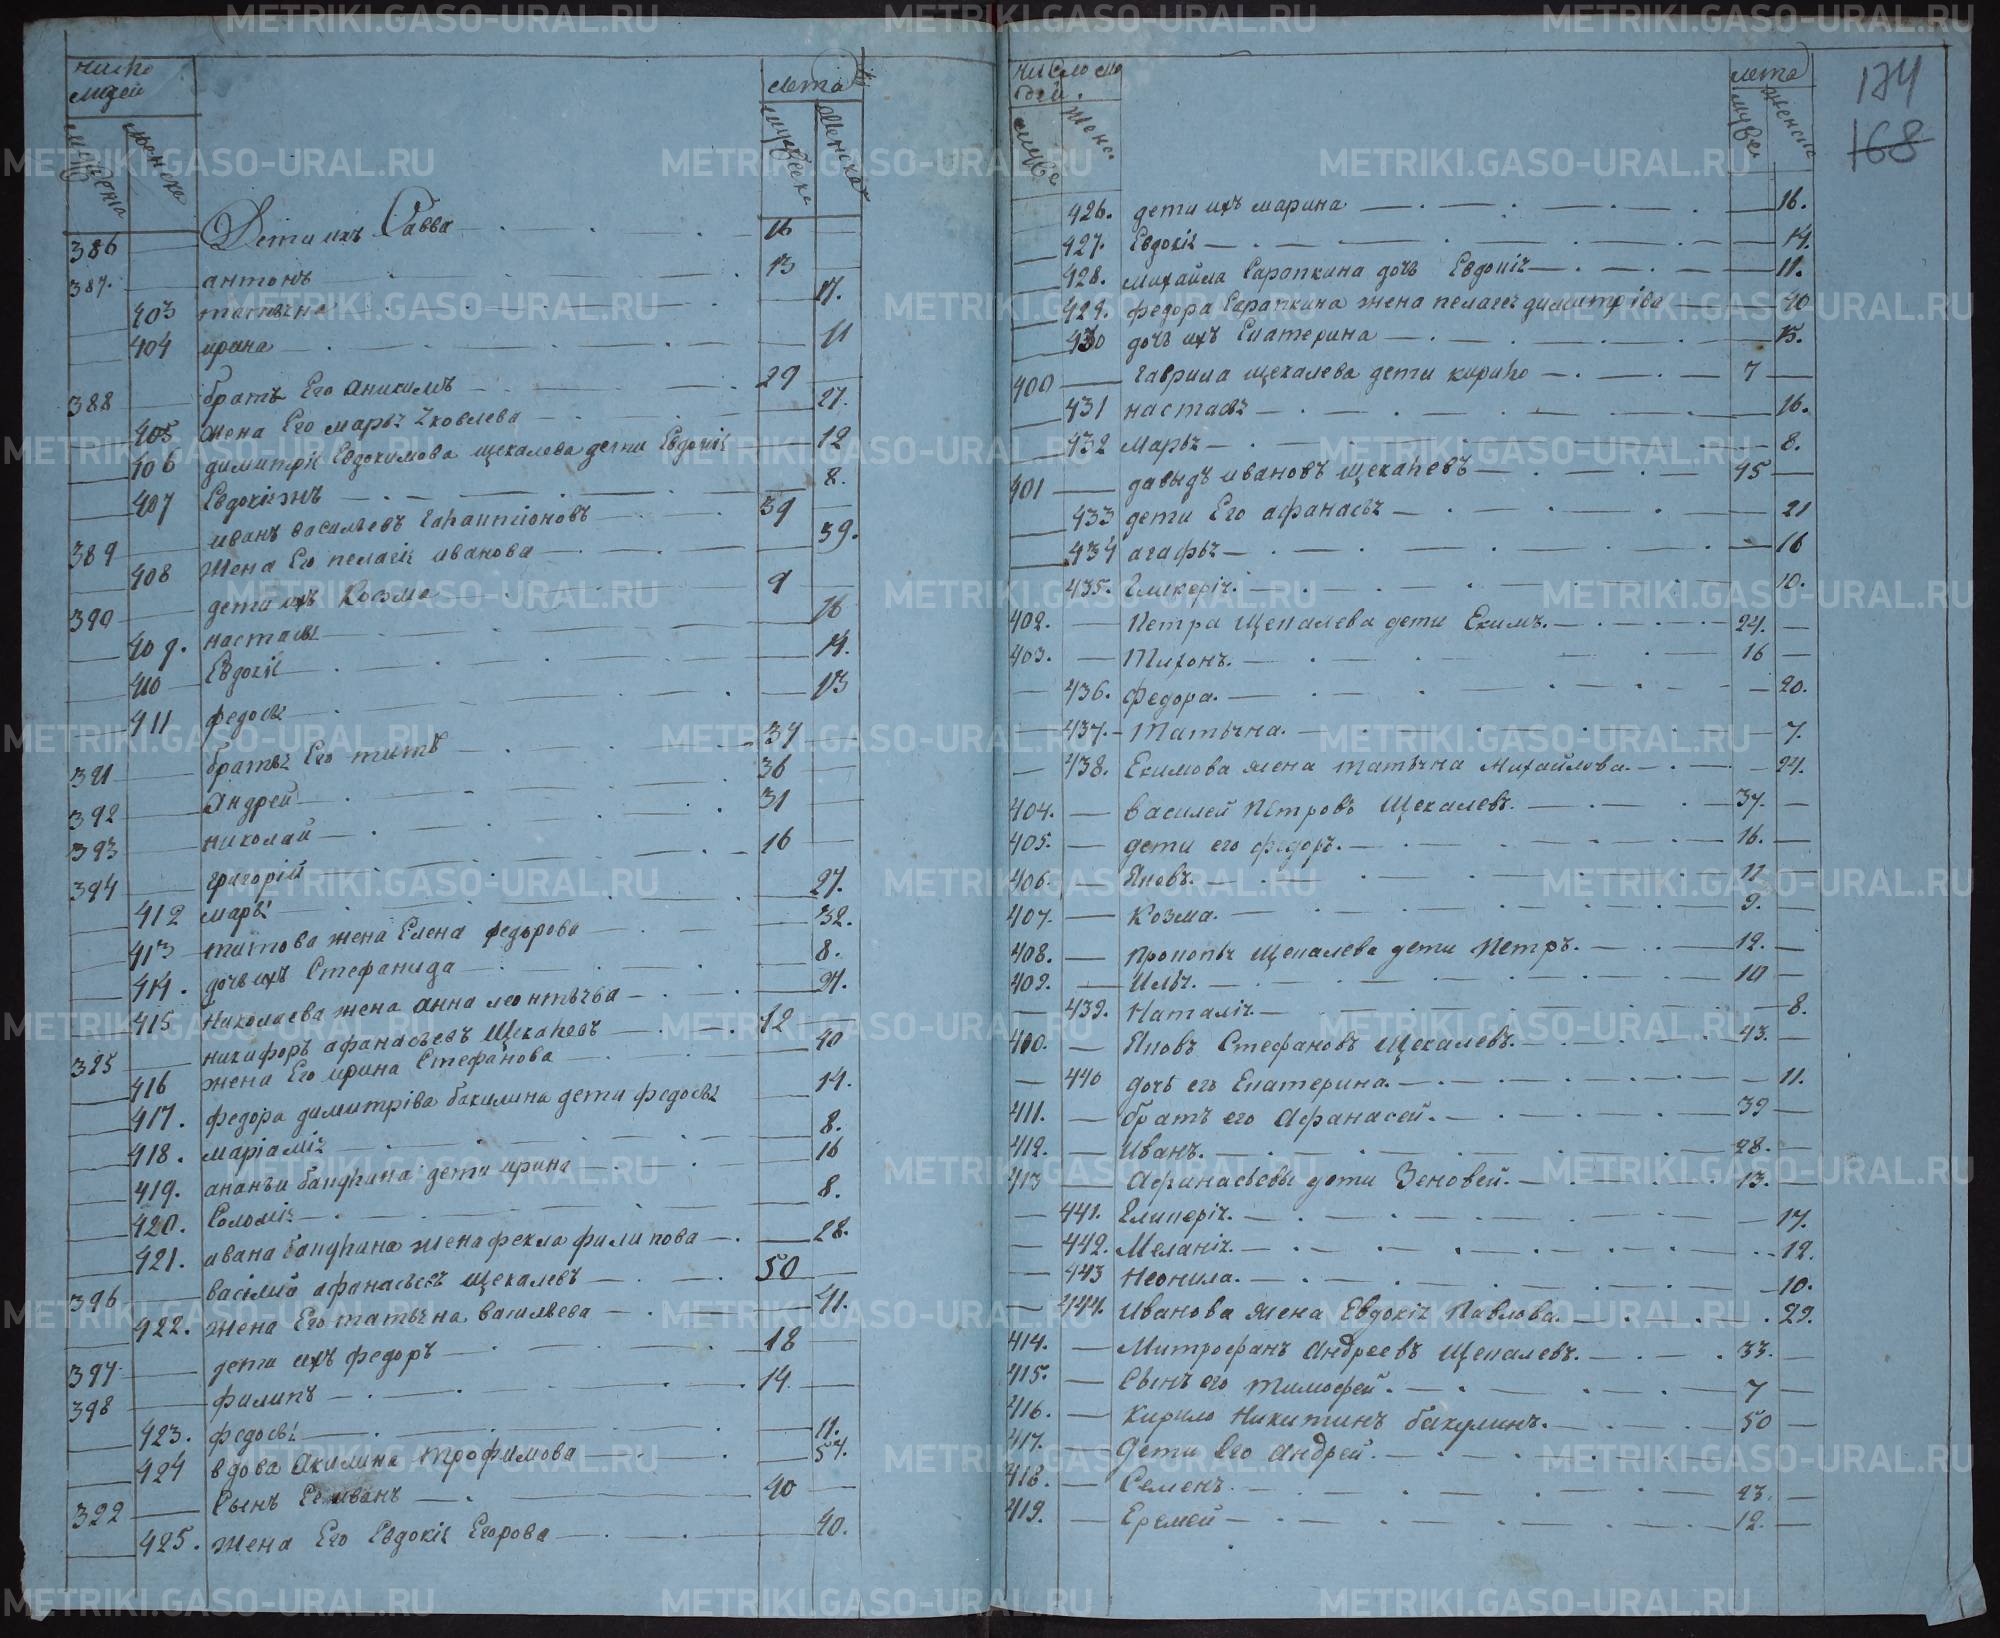 число людей лета
мужеска женска мужеска женска
386 Дети ихъ Савва 16
387. антонъ 13
403 татьяна 17.
404 ирина 11
388 братъ Его аникимъ 29
405 жена Его марья Яковлева 27.
406 димитрія Евдокимова щекалева дети Евдокія 12
407 Евдокія жъ 8.
389 иванъ васильевъ 39
408 жена Его пелагія иванова 39.
390 дети ихъ Козма 9
409. настасья 16
410 Евдокія 14.
411 федосья 13
391 братья Его титъ 34
392 Андрей 36
393 николай 31
394 григорій 16
412 марья 27.
413 титова жена Елена федорова 32.
414. дочь ихъ Стефанида 8.
415 Николаева жена анна леонтьева 24.
395 никифоръ афанасьевъ Щекалевъ 12
416 жена Его ирина Стефанова 40
417. федора димитріева бакилина дети федосья 14.
418. маріамія 8.
419. ананьи дети ирина 16
420. Соломія 8.
421. ивана жена фекла филипова 28.
396 василій афанасьевъ щекалевъ 50
422. жена Его татьяна васильева 41.
397 дети ихъ федоръ 18
398 филипъ 14
423. федосья 11.
424 вдова Акилина трофимова 57.
399 Сынъ иванъ 40
425. жена Его Евдокія Егорова 40.
174
168
число лета
мужес женс. мужес женска
426. дети ихъ марина 16.
427. Евдокія 14.
428. михайла Сарапкина дочь Евдокія 11.
429. федора Сарапкина жена пелагея димитріева 40
430 дочь ихъ Екатерина 15.
400 гаврила щекалева дети кирило 7
431 настасья 16.
432 марья 8.
401 давыдъ ивановъ щекалевъ 45
433 дети Его афанасья 21
434 агафья 16
435. Гликерія. 10.
402. Петра Щекалева дети Екимъ. 24.
403. Тихонъ. 16
436. федора. 20.
437. Татьяна. 7.
438. Екимова жена татьяна Михайлова. 24.
404. Василей Петровъ Щекалевъ. 37.
405. дети его федоръ. 16.
406. Яковъ. 11
407. Козма. 9.
408. Прокопья Щекалева дети Петръ. 12.
409. Илья. 10
439. Наталія. 8.
410. Яковъ Стефановъ Щекалевъ. 43.
440 дочь его Екатерина. 11.
411. братъ его Афанасей. 39
412. Иванъ. 28.
413 Афанасьевы дети Зеновей. 13.
441. Гликерія. 17.
442. Меланія. 12.
443 Неонила. 10.
444. Иванова жена Евдокія Павлова. 29.
414. Митрофанъ Андреевъ Щекалевъ. 33.
415. Сынъ его Тимофей. 7
416. Кирило Никитинъ бакулинъ. 50
417. Дети Его Андрей.
418. Семенъ. 23.
419. Еремей 12.
METRIKI.GASO-URAL.RU